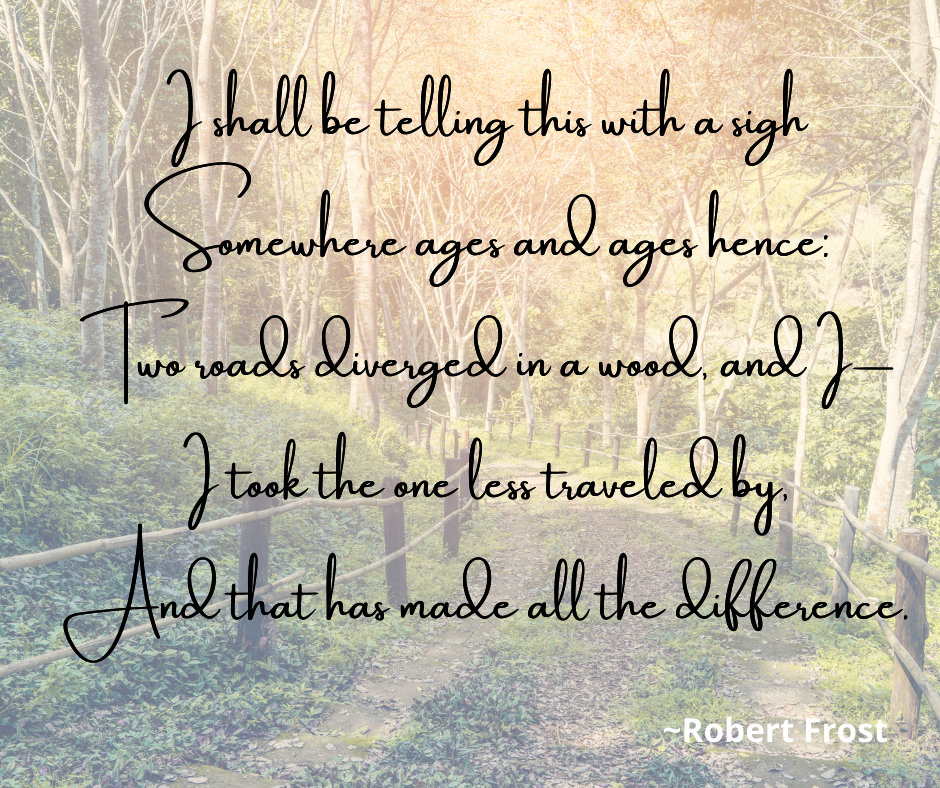 I shall be telling this with a sigh
Somewhere ages and ages hence:
Two roads diverged in a wood, and I—
I took the one less traveled by,
And that has made all the difference.
~Robert Frost